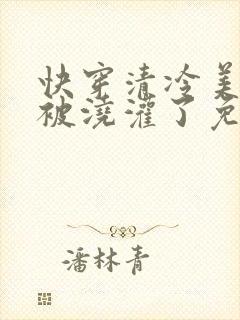 快穿清冷美
被浇灌了免
潘林青